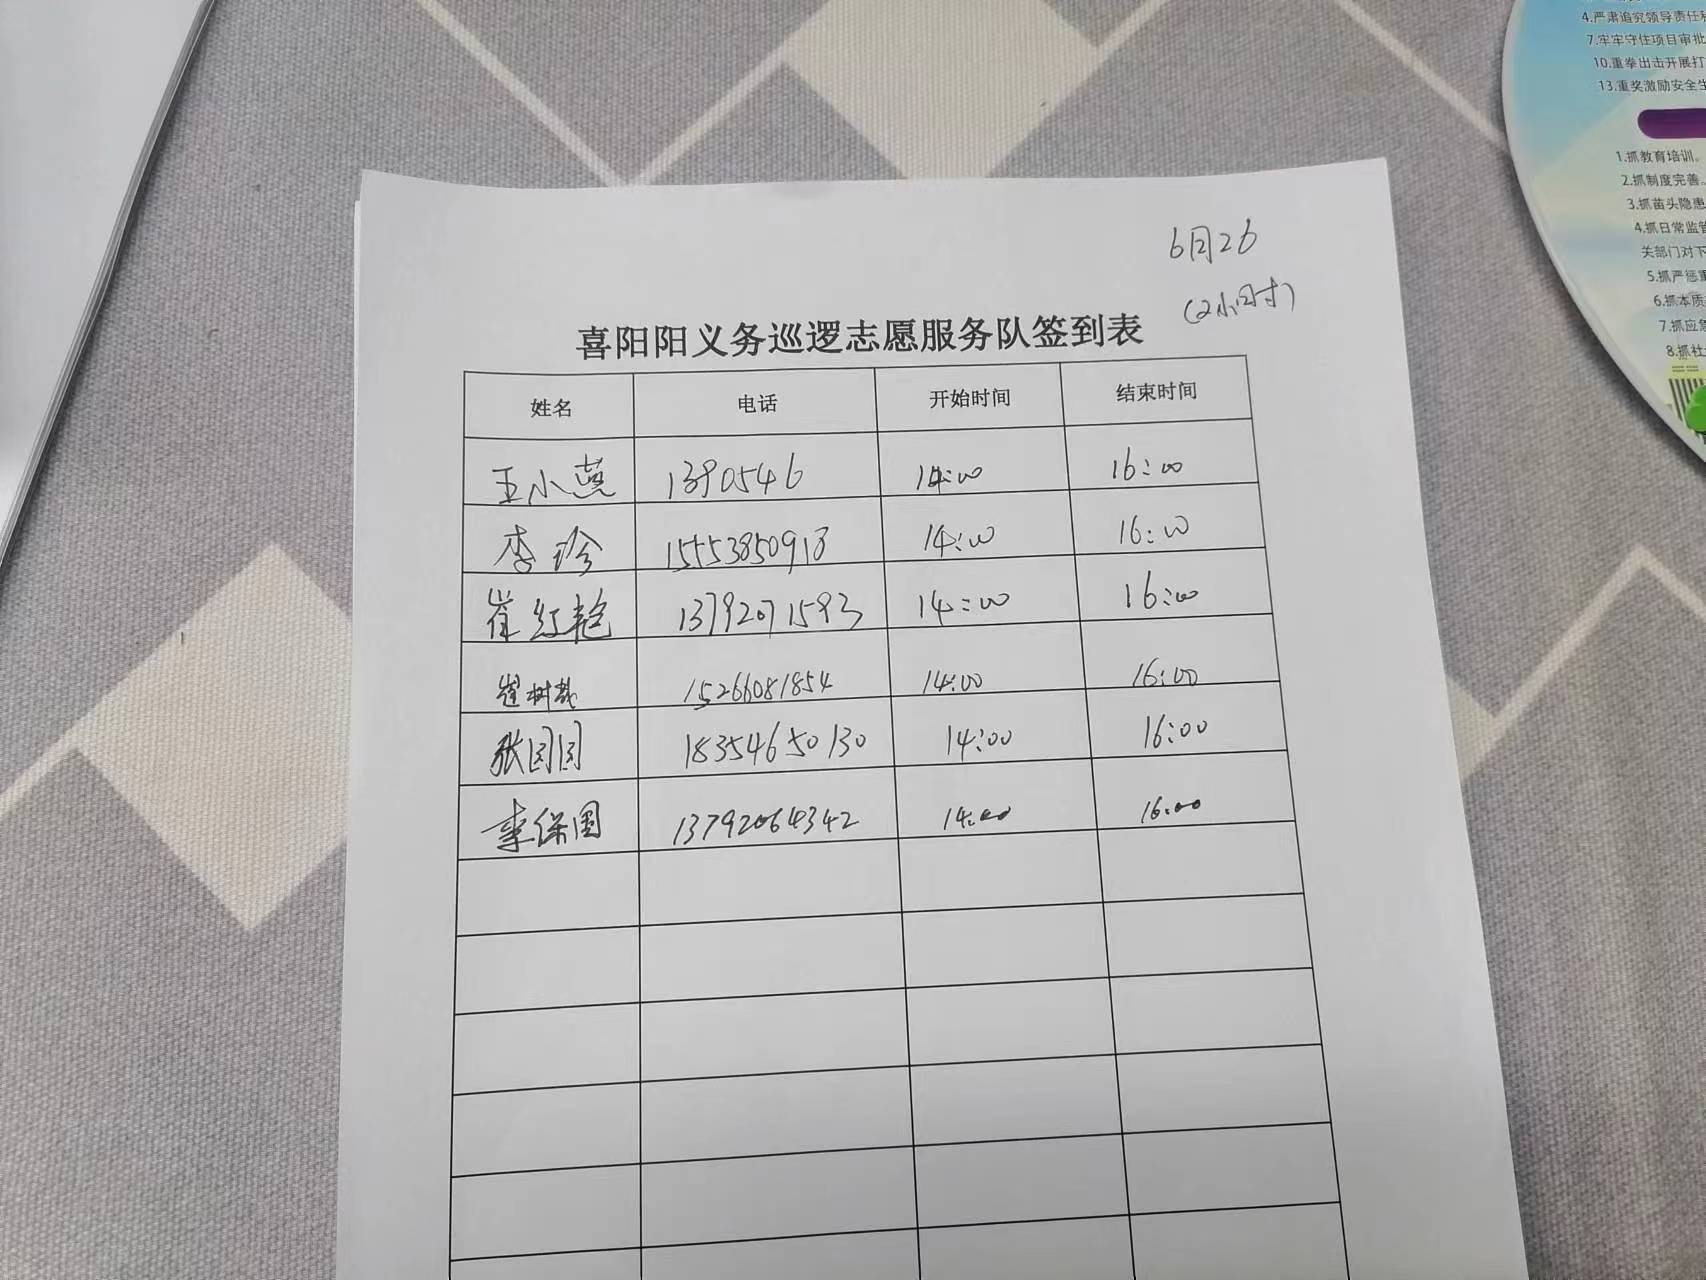 4.严肃追究领导责任
7.牢牢守住项目审批
10.重拳出击开展打
13.重奖激励安全生
1.抓教育培训。
2.抓制度完善。
3.抓苗头隐患
4.抓日常监管
关部门对下
5.抓严惩重
6.抓本质
7.抓应急
8.抓社
6月26
(2小时)
喜阳阳义务巡逻志愿服务队签到表
姓名 电话 开始时间 结束时间
王小燕 1390546 14:00 16:00
李珍 15553850918 14:00 16:00
崔红艳 13792071593 14:00 16:00
崔树 15266081854 14:00 16:00
张团团 18354650130 14:00 16:00
李保国 13792064342 14:00 16:00